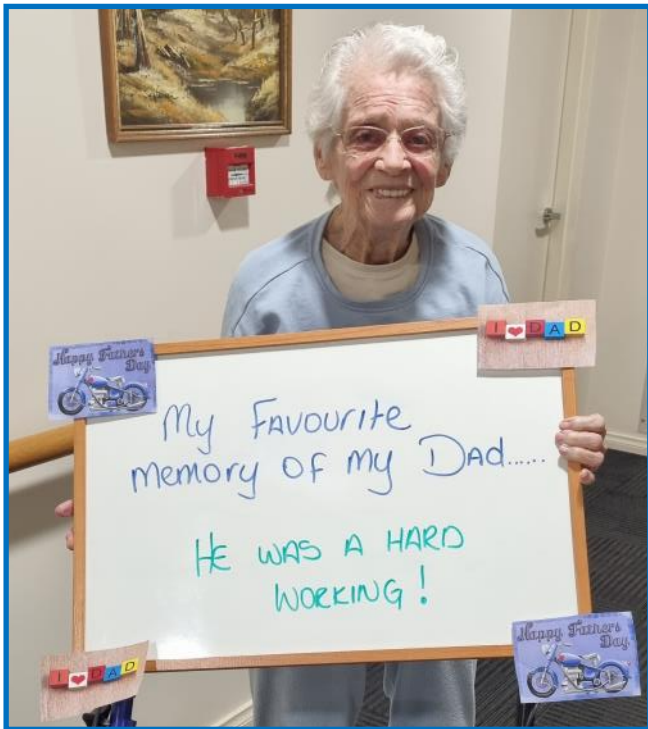 Happy Fathers
Day
I ❤ DAD
My FAVOURITE
memory of my DAD......
HE WAS A HARD
WORKING!
I ❤ DAD
Happy Fathers
Day